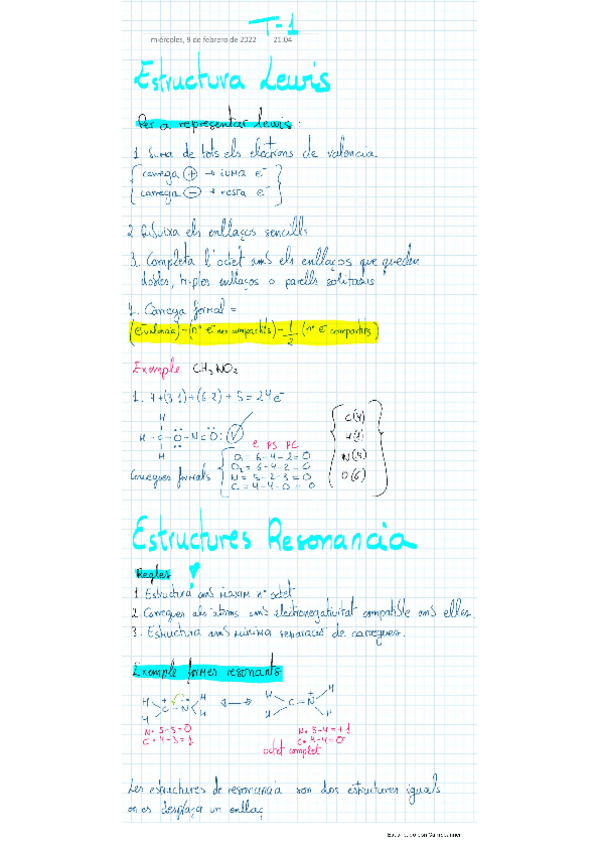 T-1
miércoles, 9 de febrero de 2022 21:04
Estructura Lewis
Per a representar Lewis:
1. Suma de tots els electrons de valència
carrega ⊕ → suma e⁻
carrega ⊖ → resta e⁻
2. Dibuixa els enllaços sencills
3. Completa l'octet amb els enllaços que queden
dobles, triples enllaços o parells solitaris
4. Càrrega formal =
(e⁻ valencia) - (nº e⁻ no compartits) - 1/2 (nº e⁻ compartits)
Exemple CH₃NO₂
1. 4+(3·1)+(6·2)+5=24e⁻
H
H-C-O-N=O:
H
C(4)
H(1)
N(5)
O(6)
e PS PC
Carregues formals
O₁ = 6-4-2=0
O₂ = 6-4-2=0
N = 5-2-3=0
C = 4-4-0=0
Estructures Resonancia
Regles
1. Estructura amb màxim nº octet
2. Carregues als àtoms amb electronegativitat compatible amb elles.
3. Estructura amb mínima separació de carregues.
Exemple formes resonants
H H H H
C - N ↔ C = N
H H H H
N = 5-5=0 N = 5-4=+1
C = 4-3=1 C = 4-4=0
octet complet
Les estructures de resonancia son dos estructures iguals
on es desplaça un enllaç